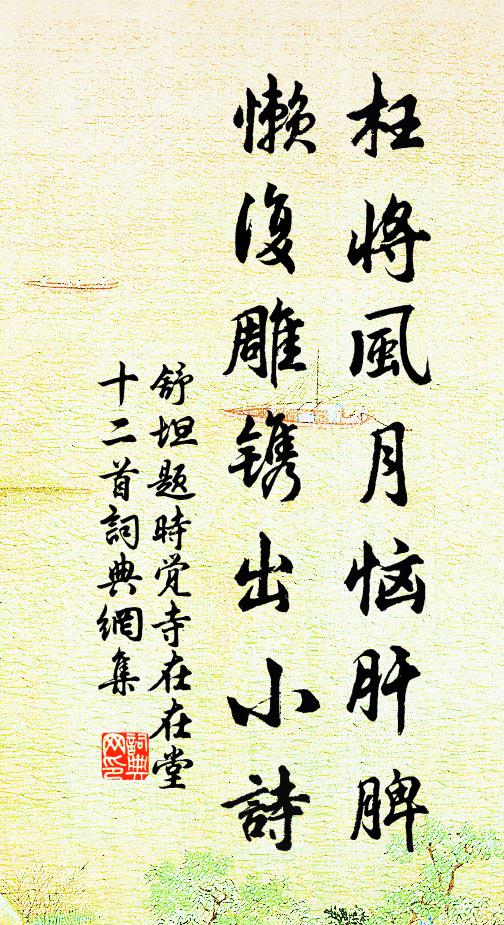 枉將風月恼肝脾
懒復雕镌出小詩
舒坦题時觉寺在在堂
十二首詞典網集
詞典网印